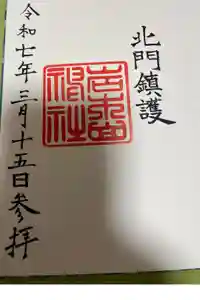 北門鎮護
岩木山
神社
令和七年三月十五日参拝